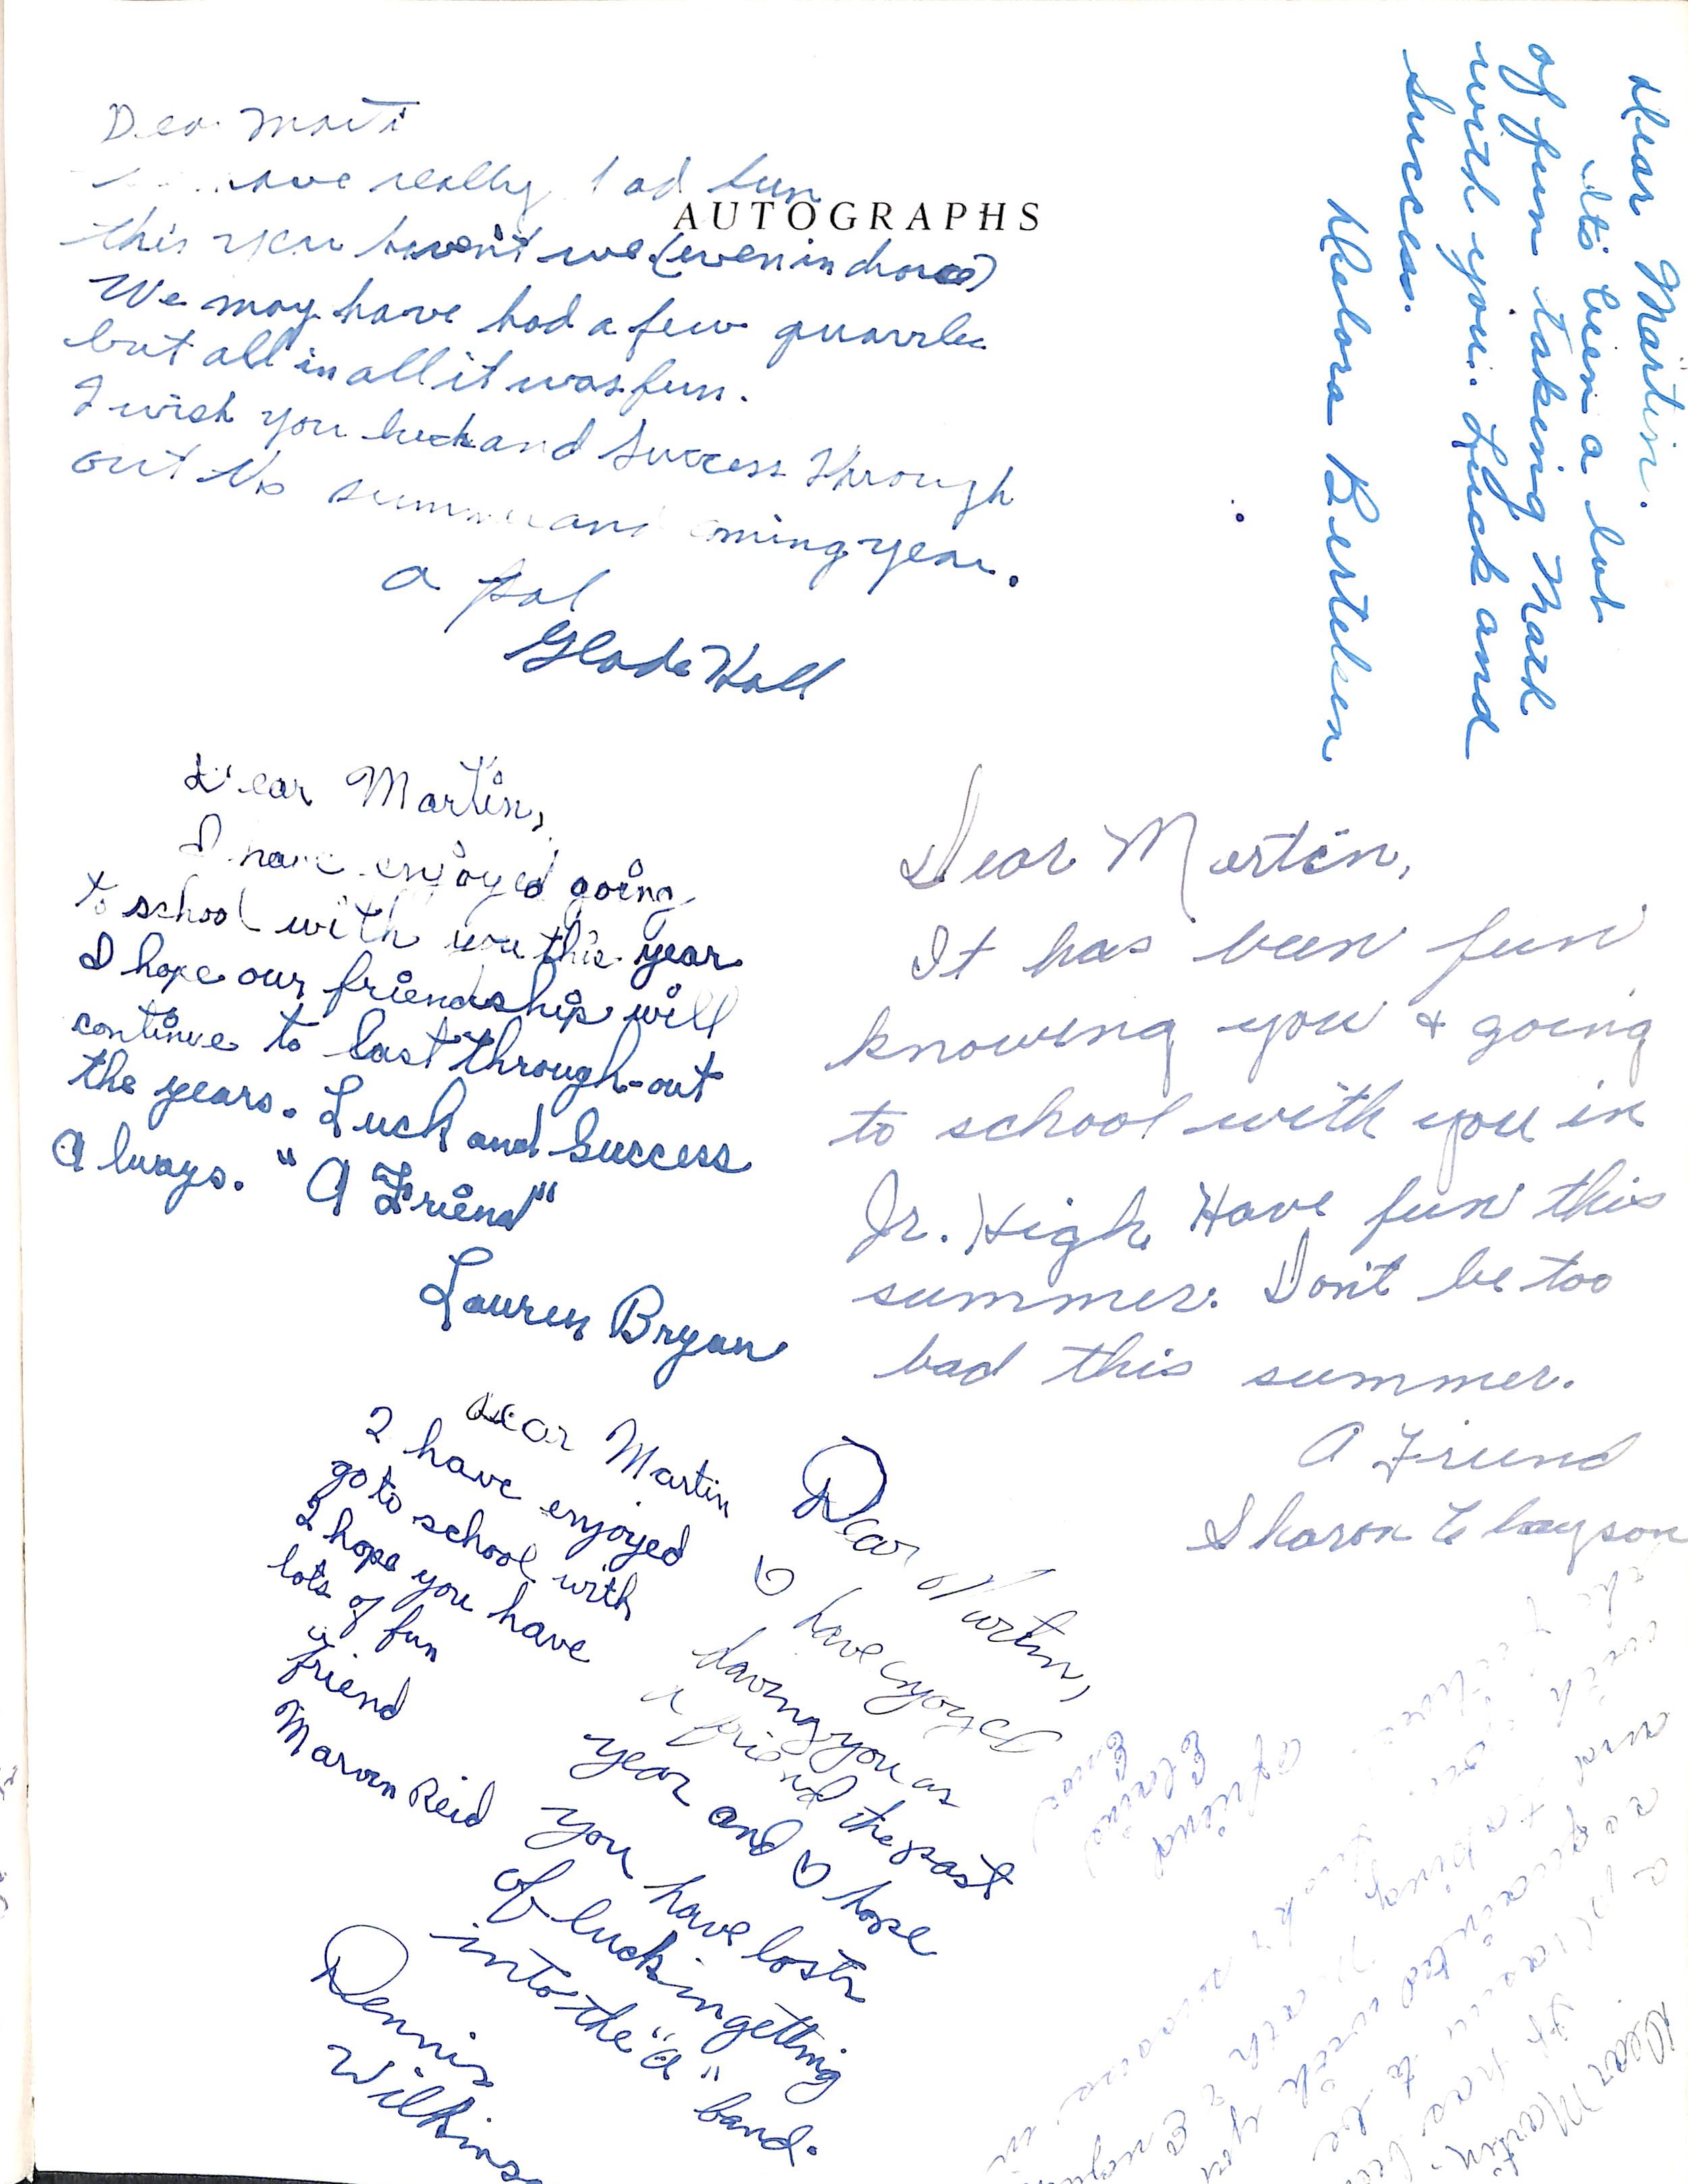 AUTOGRAPHS
Dear
have really had fun
this year haven't we (even in
We may have had a few quarrles
but all in all it was fun.
I wish you luck and success through
out the summer and coming year.
a pal
Glade Hall
Dear Martin.
Its been a lot
of fun taking Math
with you. Luck and
success.
Bertelsen
Dear Martin,
I have enjoyed going
to school with you this year
I hope our friendship will
continue to last through-out
the years. Luck and Success
Always. "A Friend"
Lauren Bryan
Dear Martin,
It has been fun
knowing you & going
to school with you in
Jr. High. Have fun this
summer. Don't be too
bad this summer.
A Friend
Sharon Clayson
Dear Martin
I have enjoyed
go to school with
I hope you have
lots of fun
a
friend
Marvin Reid
Dear Martin,
I have enjoyed
having you as
a friend the past
year and I hope
you have losts
of luck in getting
into the "a" band.
Dennis
Dear Martin.
It has been
to be
acquainted with you
and taking Math &
with you
A friend
Elaine